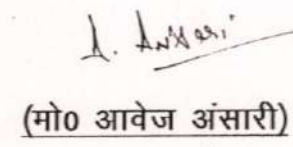 A. Ansari
(मो0 आवेज अंसारी)